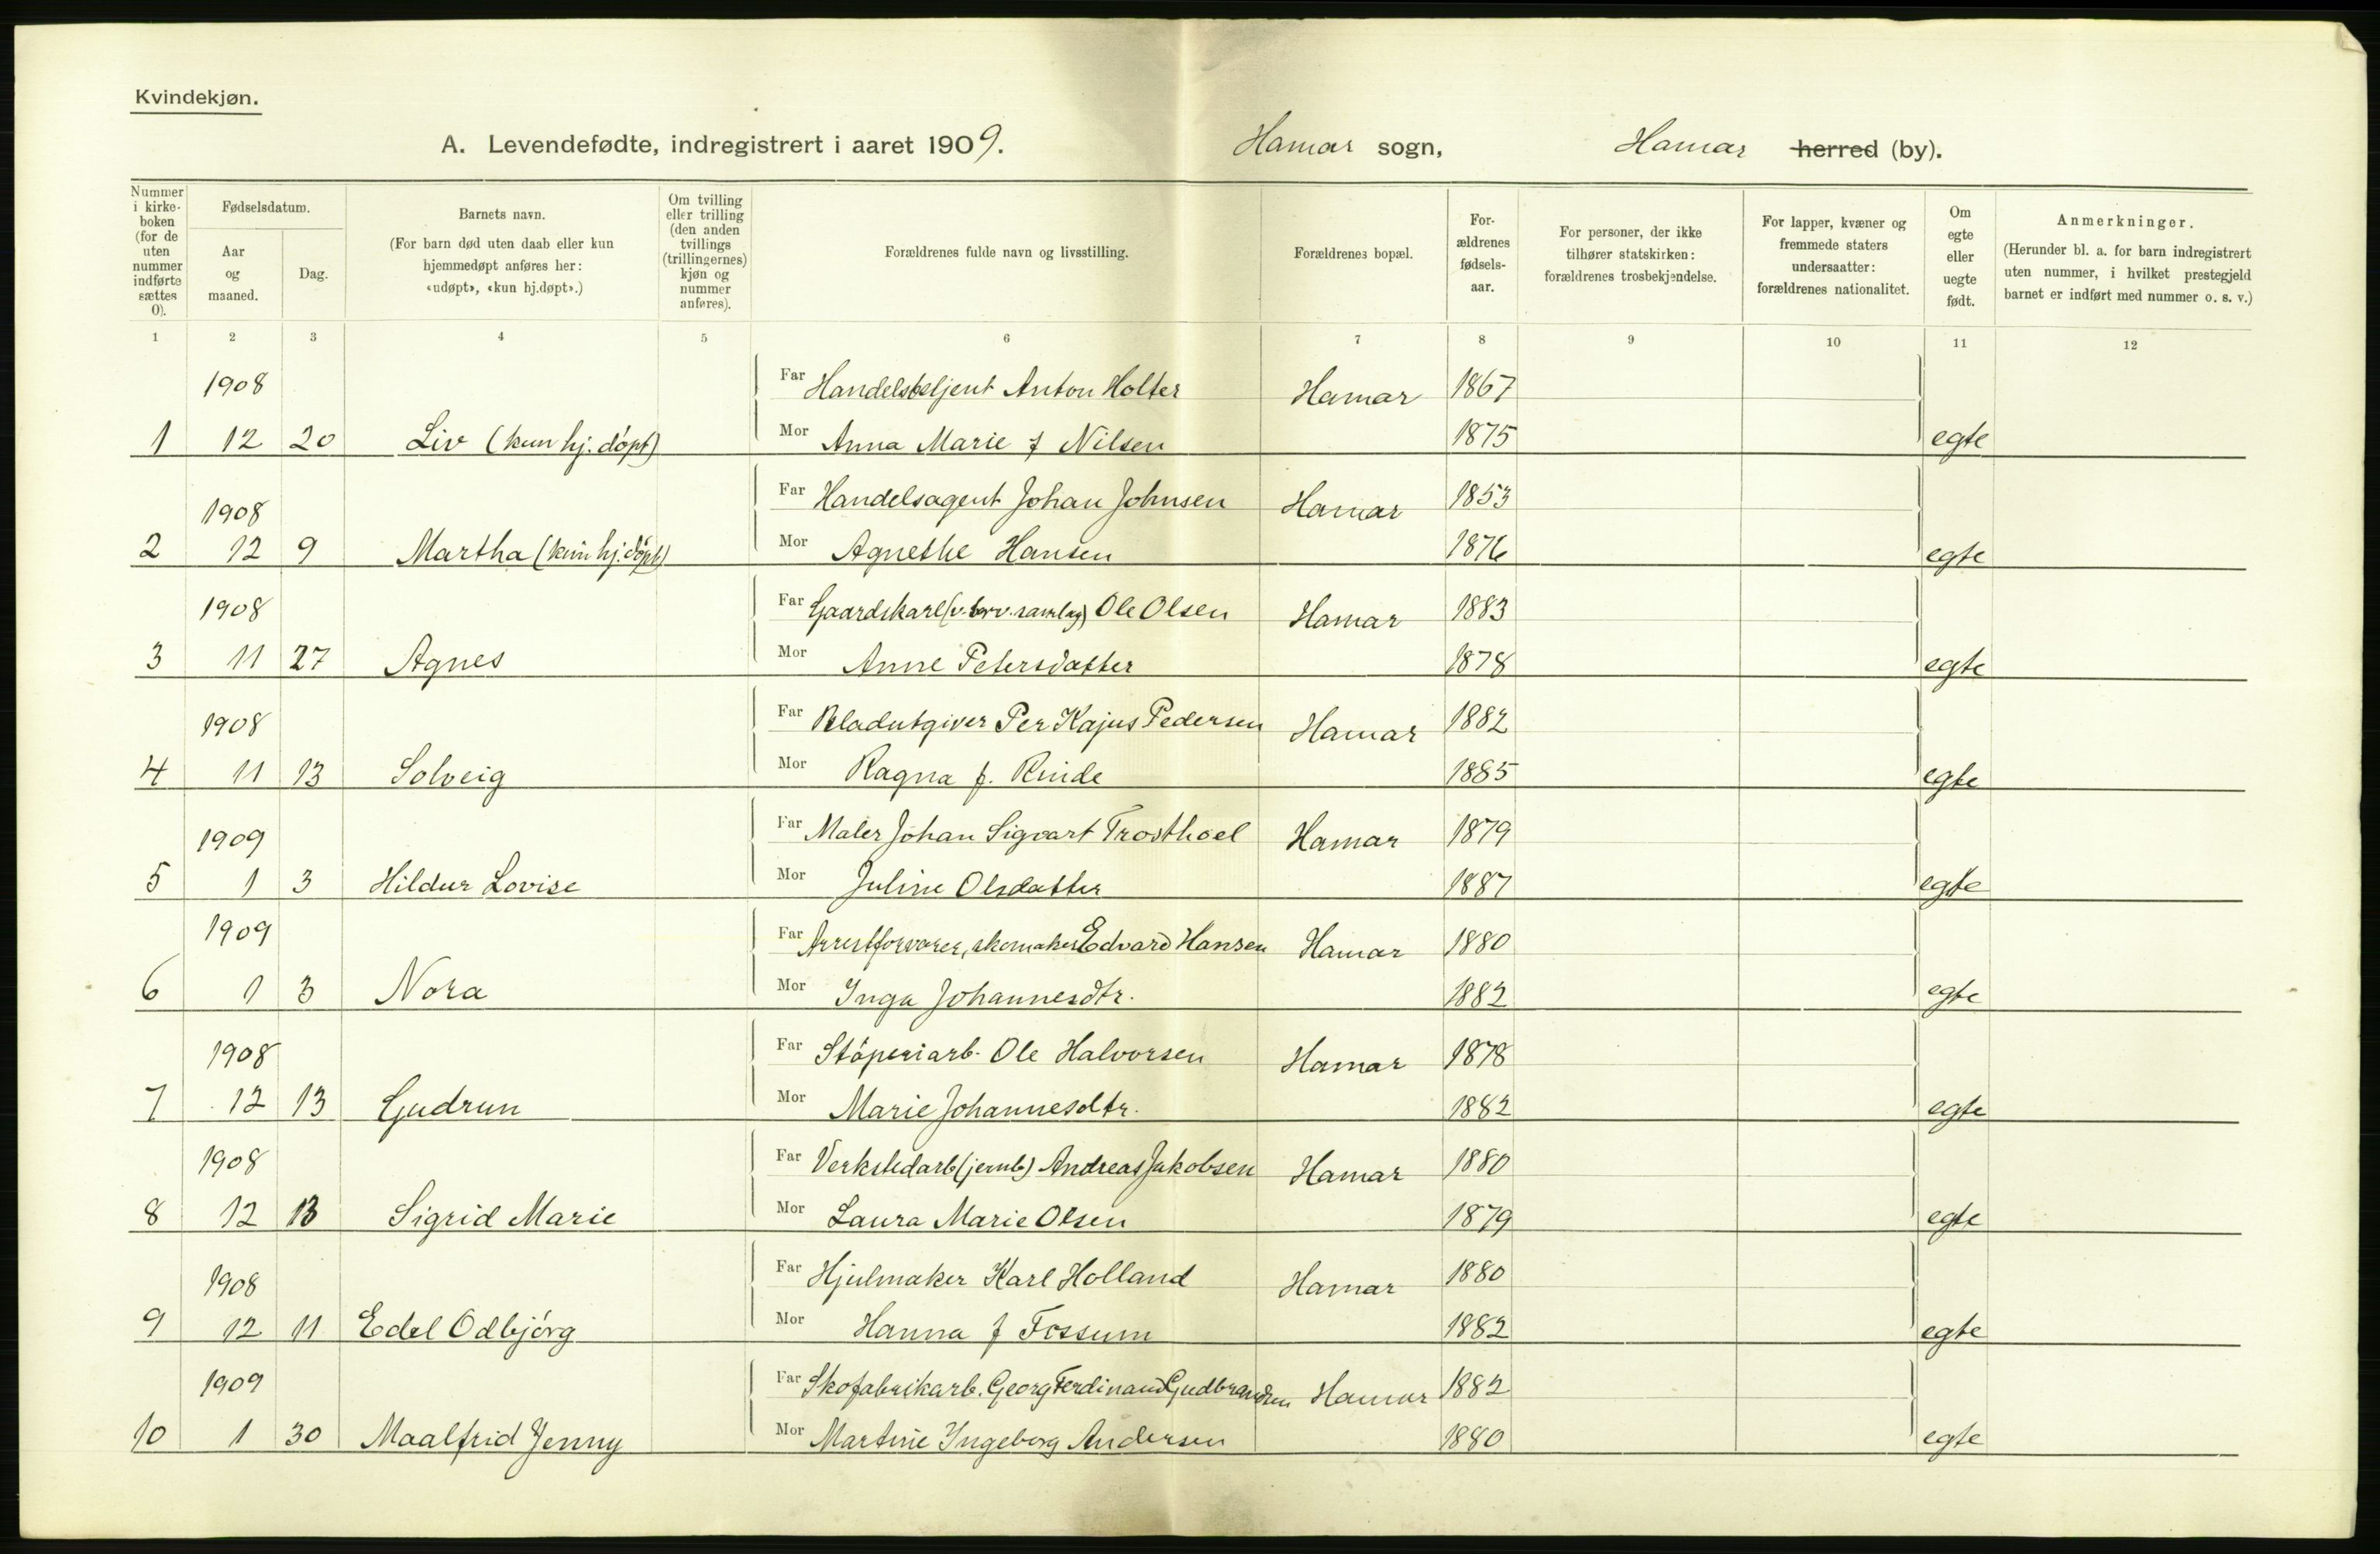 Kvindekjøn.
A. Levendefødte, indregistrert i aaret 1909. Hamar sogn, Hamar herred (by).
Nummer i kirke-boken (for de uten nummer indførte sættes 0).
Fødselsdatum.
Aar og maaned.
Dag.
Barnets navn.
(For barn død uten daab eller kun hjemmedøpt anføres her: «udøpt», «kun hj.døpt».)
Om tvilling eller trilling (den anden tvillings (trillingernes) kjøn og nummer anføres).
Forældrenes fulde navn og livsstilling.
Forældrenes bopæl.
For-ældrenes fødsels-aar.
For personer, der ikke tilhører statskirken: forældrenes trosbekjendelse.
For lapper, kvæner og fremmede staters undersaatter: forældrenes nationalitet.
Om egte eller uegte født.
Anmerkninger.
(Herunder bl. a. for barn indregistrert uten nummer, i hvilket prestegjeld barnet er indført med nummer o. s. v.)
1 2 3 4 5 6 7 8 9 10 11 12
1908 Far Handelsbetjent Anton Holter Hamar 1867
1 12 20 Liv (kun hj. döpt) Mor Anna Marie f Nilsen 1875 egte
1908 Far Handelsagent Johan Johnsen Hamar 1853
2 12 9 Martha (kun hj. döpt) Mor Agnethe Hansen 1876 egte
1908 Far Gaardskarl (v. brv. samlag) Ole Olsen Hamar 1883
3 11 27 Agnes Mor Anne Petersdatter 1878 egte
1908 Far Bladutgiver Per Kajus Pedersen Hamar 1882
4 11 13 Solveig Mor Ragna f. Rinde 1885 egte
1909 Far Maler Johan Sigvart Trosthoel Hamar 1879
5 1 3 Hildur Lovise Mor Juline Olsdatter 1887 egte
1909 Far Arrestforvarer, skomaker Edvard Hansen Hamar 1880
6 1 3 Nora Mor Inga Johannesdtr. 1882 egte
1908 Far Stöperiarb. Ole Halvorsen Hamar 1878
7 12 13 Gudrun Mor Marie Johannesdtr. 1882 egte
1908 Far Verkstedarb (jernb) Andreas Jakobsen Hamar 1880
8 12 13 Sigrid Marie Mor Laura Marie Olsen 1879 egte
1908 Far Hjulmaker Karl Holland Hamar 1880
9 12 11 Edel Odbjörg Mor Hanna f Fossum 1882 egte
1909 Far Skofabrikarb. Georg Ferdinand Gudbrandsen Hamar 1882
10 1 30 Maalfrid Jenny Mor Martine Ingeborg Andersen 1880 egte